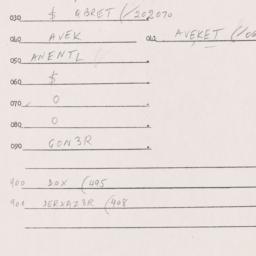 030 $ QBRET (/202070
040 AVEK 042 AVEKET (/
050 ANENTL
060 $
070 0
080 0
090 GON3R
900 DOX (495
901 DERXAZ3R (498